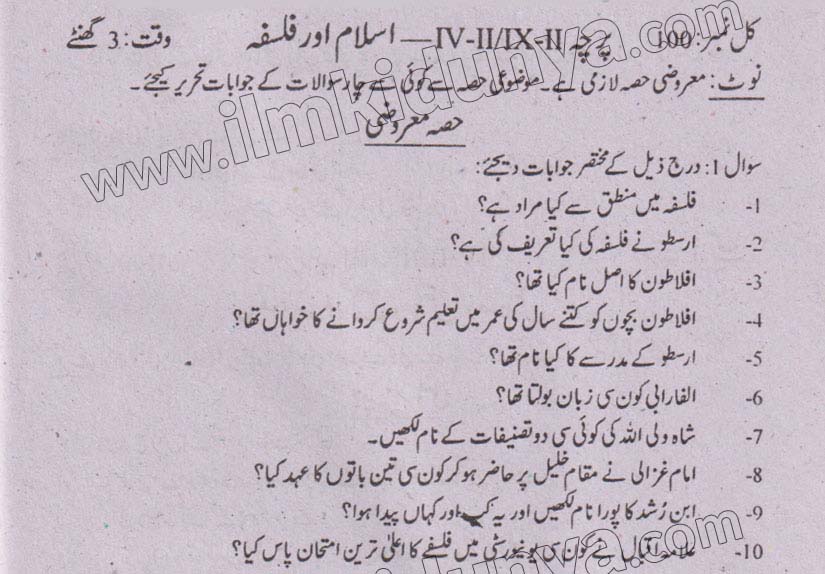 کل نمبر: 100 پرچہ IV-II/IX-II — اسلام اور فلسفہ وقت: 3 گھنٹے
نوٹ: معروضی حصہ لازمی ہے۔ موضوعی حصہ سے کوئی سے چار سوالات کے جوابات تحریر کیجئے۔
حصہ معروضی
سوال 1: درج ذیل کے مختصر جوابات دیجئے:
1- فلسفہ میں منطق سے کیا مراد ہے؟
2- ارسطو نے فلسفہ کی کیا تعریف کی ہے؟
3- افلاطون کا اصل نام کیا تھا؟
4- افلاطون بچوں کو کتنے سال کی عمر میں تعلیم شروع کروانے کا خواہاں تھا؟
5- ارسطو کے مدرسے کا کیا نام تھا؟
6- الفارابی کون سی زبان بولتا تھا؟
7- شاہ ولی اللہ کی کوئی سی دو تصنیفات کے نام لکھیں۔
8- امام غزالی نے مقام خلیل پر حاضر ہو کر کون سی تین باتوں کا عہد کیا؟
9- ابن رُشد کا پورا نام لکھیں اور یہ کب اور کہاں پیدا ہوا؟
10- علامہ اقبال نے کون سی یونیورسٹی میں فلسفے کا اعلیٰ ترین امتحان پاس کیا؟
www.ilmkidunya.com